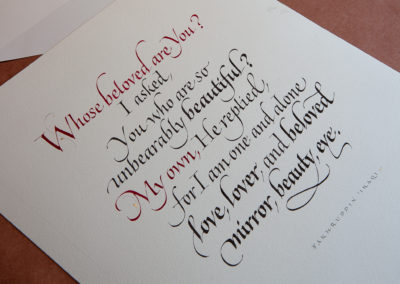 Whose beloved are You?
I asked,
You who are so
unbearably beautiful?
My own, He replied,
for I am one and alone
love, lover, and beloved
mirror, beauty, eye.
FAKHRUDDIN 'IRAQI